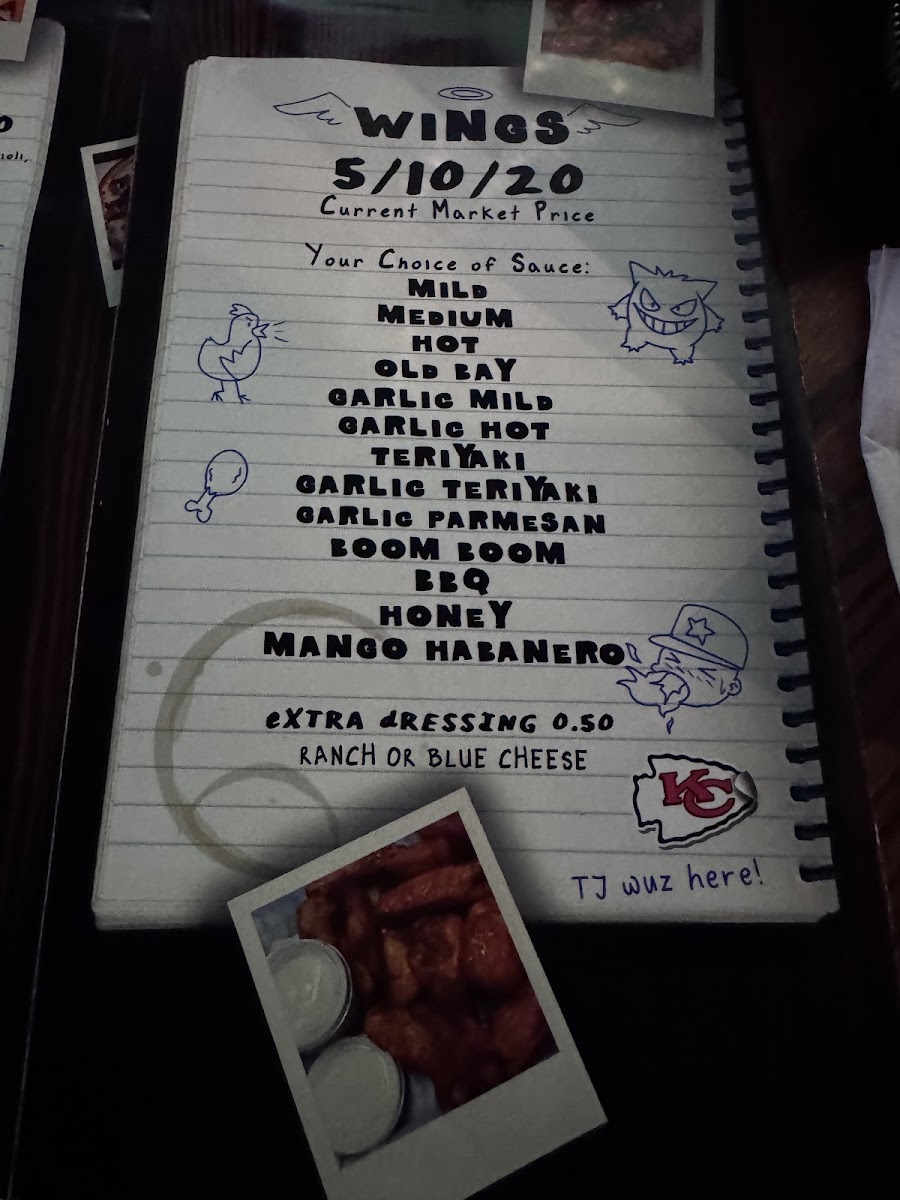 WINGS
5/10/20
Current Market Price
Your Choice of Sauce:
MILD
MEDIUM
HOT
OLD BAY
GARLIC MILD
GARLIC HOT
TERIYAKI
GARLIC TERIYAKI
GARLIC PARMESAN
BOOM BOOM
BBQ
HONEY
MANGO HABANERO
eXTRA dRESSING 0.50
RANCH OR BLUE CHEESE
KC
TJ wuz here!